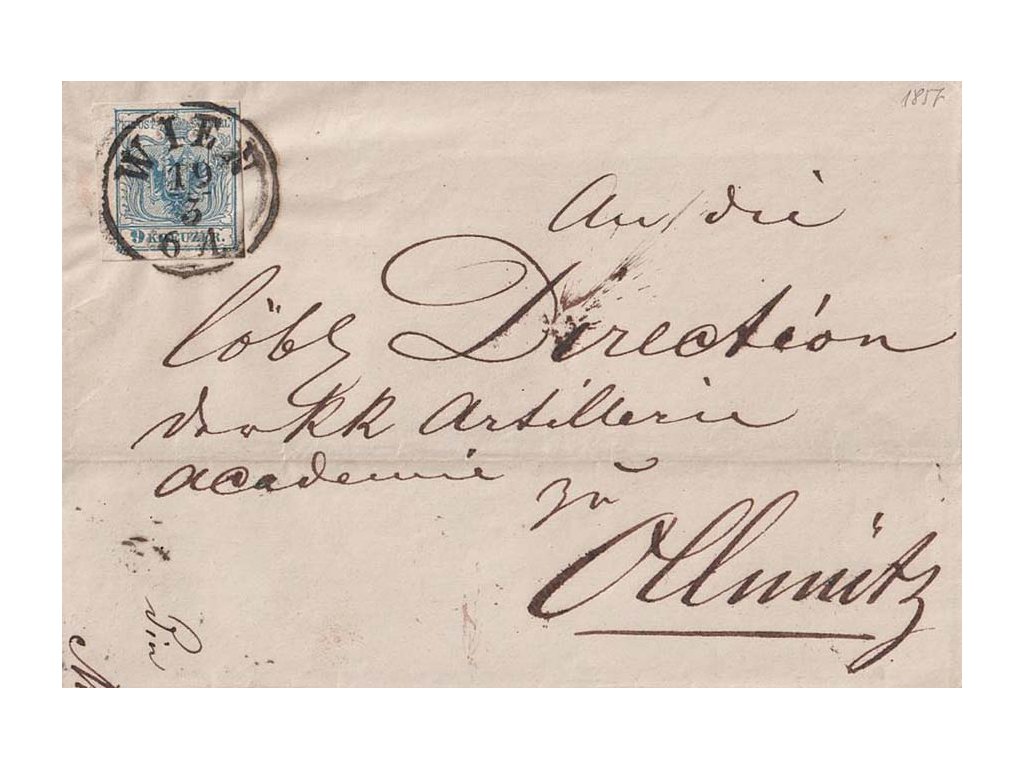 1857
WIEN
19
3
6 A
9 KREUZER.
An die
löbl Direction
der kk Artillerie
Academie
zu
Ollmütz